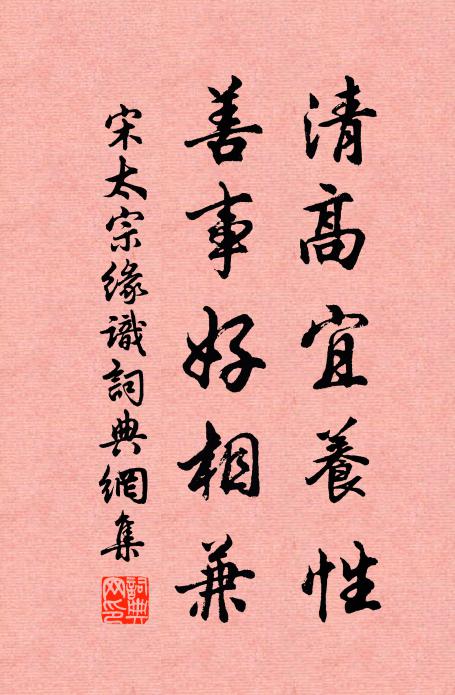 清高宜養性
善事好相兼
宋太宗緣識詞典網集
詞典網印